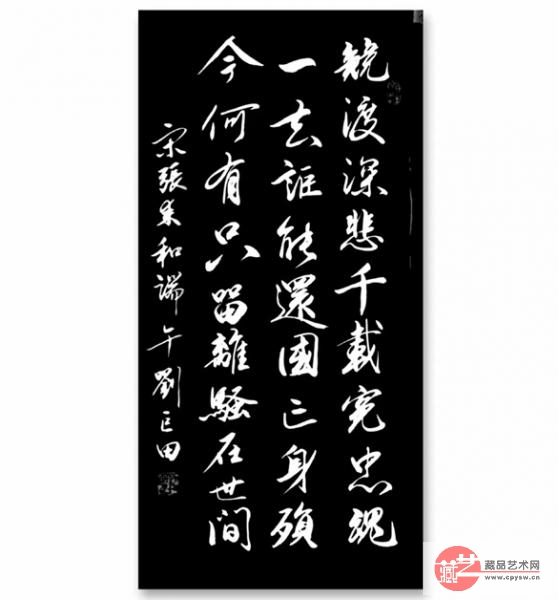 競渡深悲千載冤忠魂
一去詎能還國亡身殞
今何有只留離騷在世間
宋張耒和端午劉巨田
藏艺
藏品艺术网
www.cpysw.cn